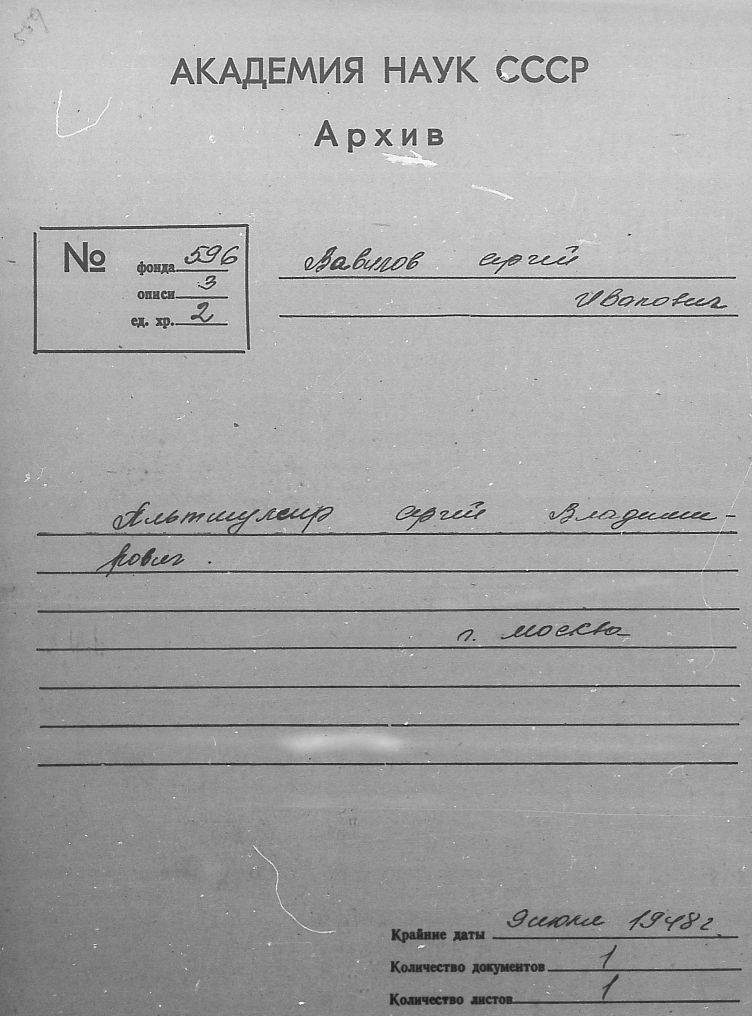 АКАДЕМИЯ НАУК СССР
Архив
№
фонда 596
описи 3
ед. хр. 2
Вавилов Сергей
Иванович
Альтшулер Сергей Владими-
рович.
г. Москва
Крайние даты 1948 г.
Количество документов 1
Количество листов 1